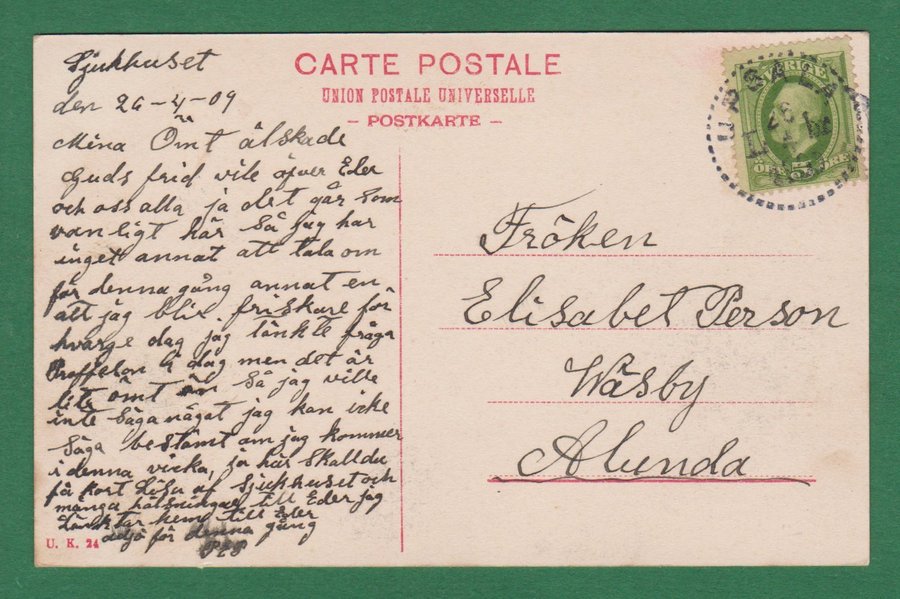 Sjukhuset
den 26-4-09
Mina Ömt älskade
Guds frid vile öfver Eder
och oss alla ja det går som
vanligt här så jag har
inget annat att tala om
för denna gång annat en
att jag blir friskare för
hvarge dag jag tänkte fråga
i dag men det är
lite ömt så jag ville
inte säga något jag kan icke
säga bestämt om jag kommer
i denna vicka, ja här skall du
få kort af sjukhuset och
många hälsningar till Eder jag
hem till Eder
adjö för denna gång
CARTE POSTALE
UNION POSTALE UNIVERSELLE
- POSTKARTE -
SVERIGE
UPSALA
26 4
Fröken
Elisabet Person
Wäsby
Alunda
U. K. 24